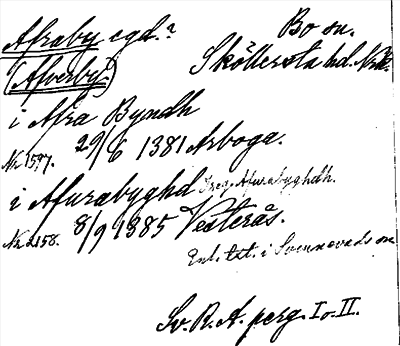 Afraby egd.?
Bo sn.
(Afverby.)
Sköllersta hd. Nrk.
i Afra Byndh
29/6 1381 Arboga.
Nr. 1597.
i Afurabyghd
Ireg. Afurabyghdh.
8/9 1385 Vesterås.
Nr. 2158.
Enl. txt. i Svennevads sn
Sv. R. A. perg. I o. II.